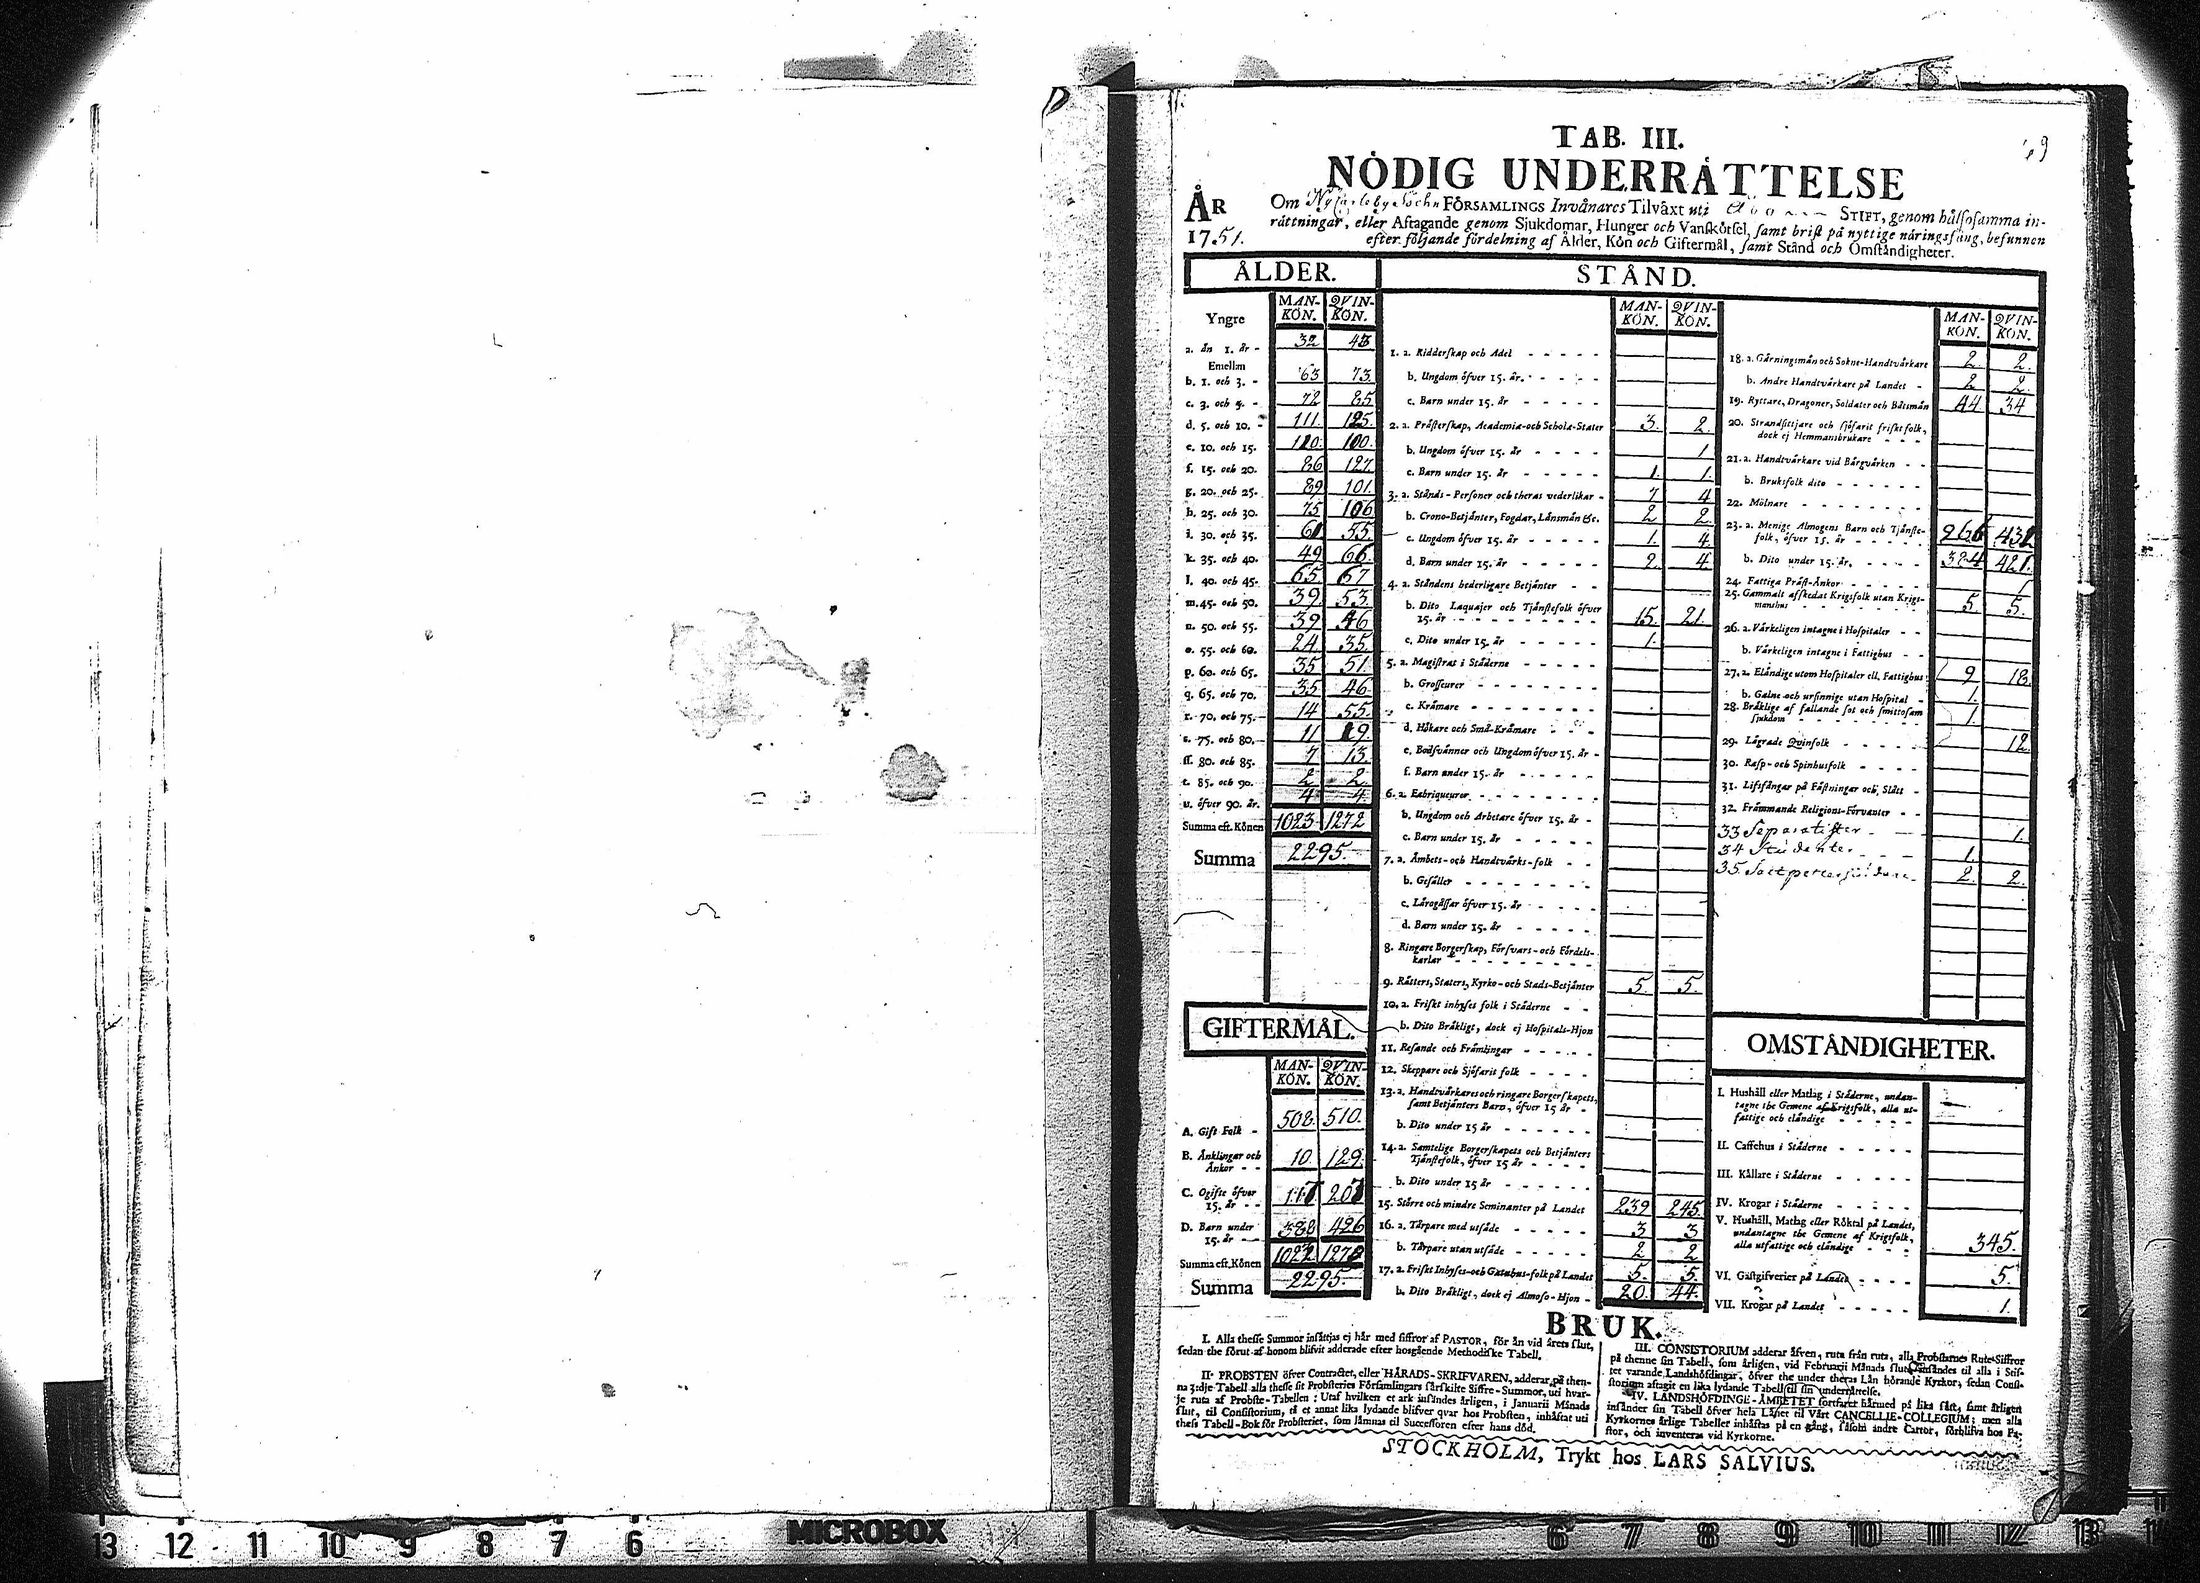 TAB. III.
NÖDIG UNDERRÄTTELSE
ÅR
1751.
Om Nycarleby Sochn FÖRSAMLINGS Invånares Tilväxt uti Åbo STIFT, genom hälsosamma in-
rättningar, eller Aftagande genom Sjukdomar, Hunger och Vanskötsel, samt brist på nyttige näringsfång, befunnen
efter följande fördelning af Ålder, Kön och Giftermål, samt Stånd och Omständigheter.
ÅLDER.
MAN-KÖN. QVIN-KÖN.
Yngre
a. än 1. år - 32 43
Emellan
b. 1. och 3. - 63 73.
c. 3. och 5. - 72 85
d. 5. och 10. - 111. 125.
e. 10. och 15. 110. 100.
f. 15. och 20. 86 127.
g. 20. och 25. 89 101.
h. 25. och 30. 75 106
i. 30. och 35. 61 55.
k. 35. och 40. 49 66.
l. 40. och 45. 65. 67
m. 45. och 50. 39. 53.
n. 50. och 55. 39 46
o. 55. och 60. 24 35.
p. 60. och 65. 35 51.
q. 65. och 70. 35 46
r. 70. och 75. 14 55.
s. 75. och 80. 11 19.
ſſ. 80. och 85. 7 13.
t. 85. och 90. 2 2
u. öfver 90. år. 4 4
Summa eft. Könen 1023 1272
Summa 2295.
GIFTERMÅL.
MAN-KÖN. QVIN-KÖN.
A. Gift Folk - 508. 510.
B. Änklingar och
Änkor - - 10. 129.
C. Ogifte öfver
15. år - -
D. Barn under
15. år 388 426
Summa eft. Könen
Summa 2295.
STÅND.
MAN-KÖN. QVIN-KÖN.
1. a. Ridderskap och Adel
b. Ungdom öfver 15. år.
c. Barn under 15. år
2. a. Prästerskap, Academiæ-och Scholæ-Stater 3. 2.
b. Ungdom öfver 15. år 1
c. Barn under 15. år 1. 1.
3. a. Stånds-Personer och theras vederlikar - 7 4
b. Crono-Betjänter, Fogdar, Länsmän &c. 2 2
c. Ungdom öfver 15. år 1. 4
d. Barn under 15. år 2. 4
4. a. Ståndens hederligare Betjänter
b. Dito Laquajer och Tjänstefolk öfver
15. år 15. 21.
c. Dito under 15. år 1.
5. a. Magistrat i Städerne
b. Grosseurer
c. Krämare
d. Hökare och Små-Krämare
e. Bodsvänner och Ungdom öfver 15. år
f. Barn under 15. år
6. a. Fabriqueurer
b. Ungdom och Arbetare öfver 15. år
c. Barn under 15. år
7. a. Ämbets-och Handtvärks-folk
b. Gesäller
c. Lärogåssar öfver 15. år
d. Barn under 15. år
8. Ringare Borgerskap, Försvars-och Fördels-
karlar
9. Rätters, Staters, Kyrko-och Stads-Betjänter 5. 5.
10. a. Friskt inhyses folk i Städerne
b. Dito Bräkligt, dock ej Hospitals-Hjon
11. Resande och Främlingar
12. Skeppare och Sjöfarit folk
13. a. Handtvärkares och ringare Borgerskapets,
samt Betjänters Barn, öfver 15 år
b. Dito under 15 år
14. a. Samtelige Borgerskapets och Betjänters
Tjänstefolk, öfver 15 år
b. Dito under 15 år
15. Större och mindre Seminanter på Landet 239 245.
16. a. Tårpare med utsäde 3 3
b. Tårpare utan utsäde 2. 2
17. a. Friskt Inhyses-och Gatuhus-folk på Landet 5. 5.
b. Dito Bräkligt, dock ej Almoso-Hjon 20. 44.
MAN-KÖN. QVIN-KÖN.
18. a. Gärningsmän och Sokne-Handtvärkare 2. 2.
b. Andre Handtvärkare på Landet 2 2.
19. Ryttare, Dragoner, Soldater och Båtsmän 44 34
20. Strandsittjare och sjöfarit friskt folk,
dock ej Hemmansbrukare
21. a. Handtvärkare vid Bärgvärken
b. Bruksfolk dito
22. Mölnare
23. a. Menige Almogens Barn och Tjänste-
folk, öfver 15. år 266
b. Dito under 15. år. 384 421.
24. Fattiga Präst-Änkor 1
25. Gammalt afskedat Krigsfolk utan Krigs-
manshus 5 5.
26. a. Värkeligen intagne i Hospitaler
b. Värkeligen intagne i Fattighus
27. a. Eländige utom Hospitaler ell. Fattighus 9 18.
b. Galne och ursinnige utan Hospital 1.
28. Bräklige af fallande sot och smittosam
sjukdom 1.
29. Lägrade Qvinfolk 12
30. Rasp-och Spinhusfolk
31. Lifsfångar på Fästningar och Slått
32. Främmande Religions-Förvanter
33 Separatister 1.
34 Studenter 1.
35. Saltpetersjudare 2. 2.
OMSTÄNDIGHETER.
I. Hushåll eller Matlag i Städerne, undan-
tagne the Gemene af Krigsfolk, alla ut-
fattige och eländige
II. Caffehus i Städerne
III. Källare i Städerne
IV. Krogar i Städerne
V. Hushåll, Matlag eller Röktal på Landet,
undantagne the Gemene af Krigsfolk,
alla utfattige och eländige 345.
VI. Gästgifverier på Landet 5.
VII. Krogar på Landet 1.
BRUK.
I. Alla thesse Summor insättjas ej här med siffror af PASTOR, för än vid årets slut,
sedan the förut af honom blifvit adderade efter hosgående Methodiske Tabell.
II. PROBSTEN öfver Contractet, eller HÄRADS-SKRIFVAREN, adderar på then-
na 3:dje Tabell alla thesse sit Probsteries Församlingars särskilte Siffre-Summor, uti hvar-
je ruta af Probste-Tabellen: Utaf hvilken et ark insändes årligen, i Januarii Månads
slut, til Consistorium, så et annat lika lydande blifver qvar hos Probsten, inhäftat uti
thess Tabell-Bok för Probsteriet, som lämnas til Successoren efter hans död.
III. CONSISTORIUM adderar äfven, ruta från ruta, alla Probstarnes Rute-Siffror
på thenne sin Tabell, som årligen, vid Februarii Månads slut, insändes til alla i Stif-
tet varande Landshöfdingar, öfver the under theras Län hörande Kyrkor, sedan Consi-
storium aftagit en lika lydande Tabell til sin underrättelse.
IV. LANDSHÖFDINGE-ÄMBETET fortfarer härmed på lika sätt, samt årligen
insänder sin Tabell öfver hela Länet til Vårt CANCELLIE-COLLEGIUM; men alla
Kyrkornes årlige Tabeller inhäftas på en gång, såsom andre Cartor, förblifva hos Pa-
stor, och inventeras vid Kyrkorne.
STOCKHOLM, Trykt hos LARS SALVIUS.
13 12 11 10 9 8 7 6 MICROBOX 6 7 8 9 10 11 12 13